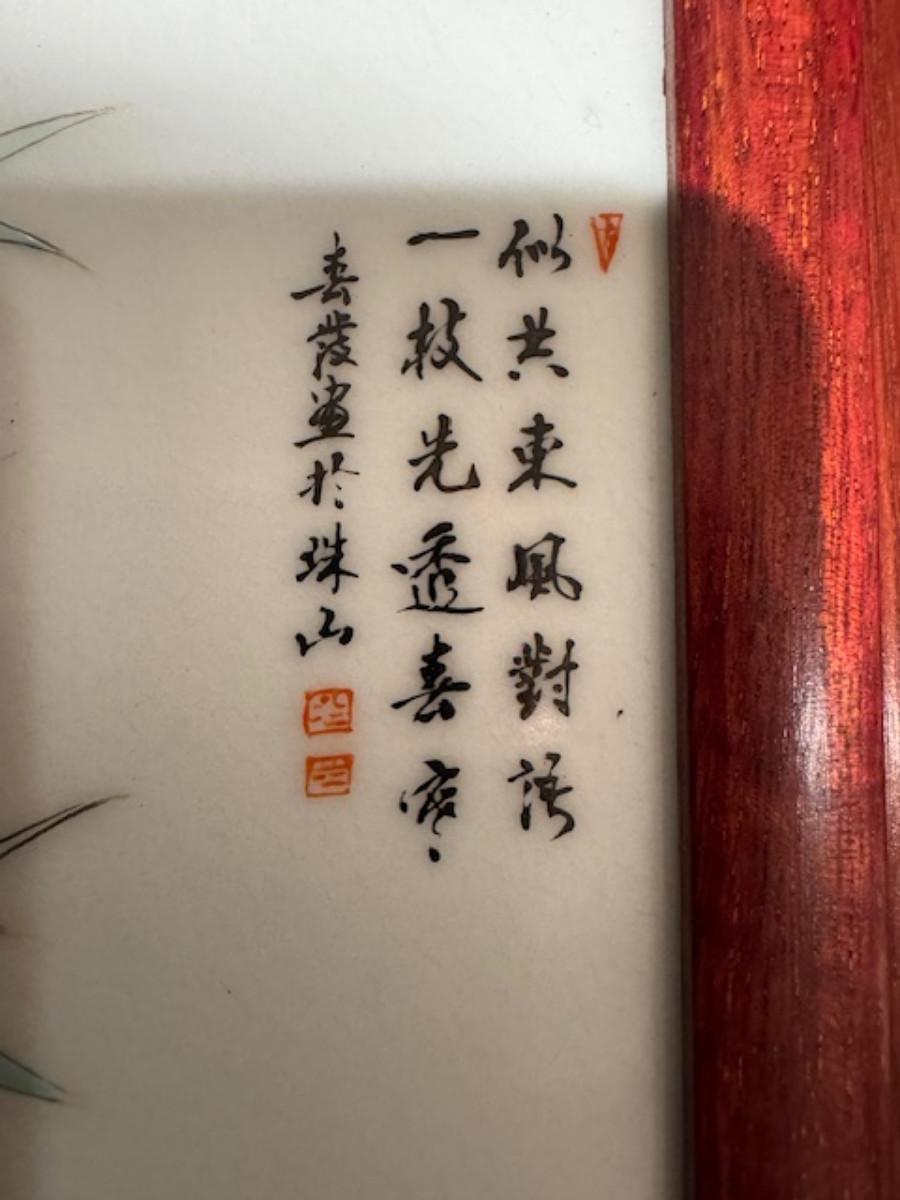 似共東風對語
一枝先透春寒
春發畫於珠山